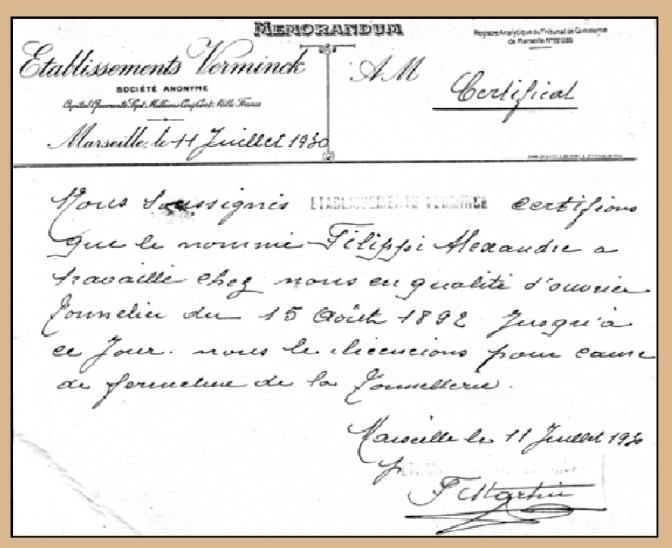 MEMORANDUM
Registre Analytique du Tribunal de Commerce
de Marseille
Etablissements Verminck
SOCIÉTÉ ANONYME
Capital Quarante Sept Millions Cinq Cent Mille Francs
Marseille, le 11 Juillet 1930
A M
Certificat
Nous soussignés ETABLISSEMENTS VERMINCK certifions
que le nommé Filippi Alexandre a
travaillé chez nous en qualité d'ouvrier
Tonnelier du 15 Août 1892 jusqu'à
ce jour. nous le licencions pour cause
de fermeture de la Tonnellerie.
Marseille le 11 Juillet 1930
F Martin